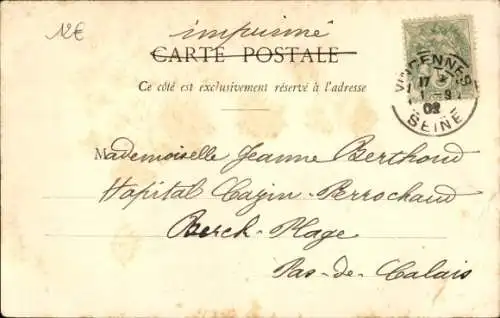 12€
imprimé
CARTE POSTALE
Ce côté est exclusivement réservé à l'adresse
VINCENNES
17
1 - 9
02
SEINE
Mademoiselle Jeanne Berthoud
Hopital Cazin-Perrochaud
Berck-Plage
Pas-de-Calais